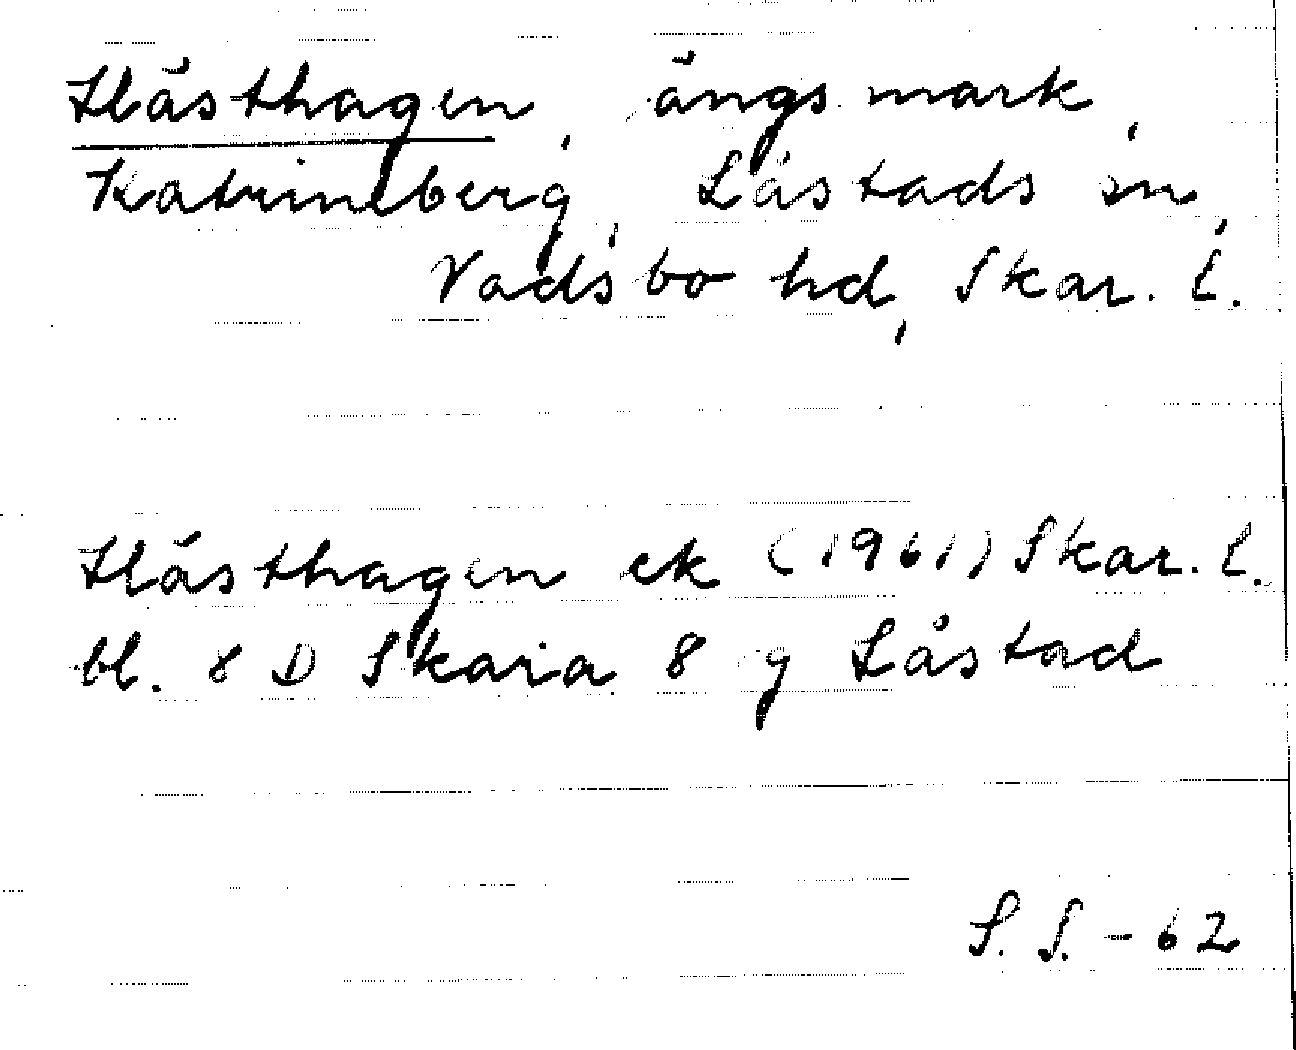 Hästhagen, ängsmark,
Katrineberg, Låstads sn,
Vadsbo hd, Skar. l.
Hästhagen ek (1961) Skar. l.
bl. 8 D Skara 8 g Låstad
S. S. - 62